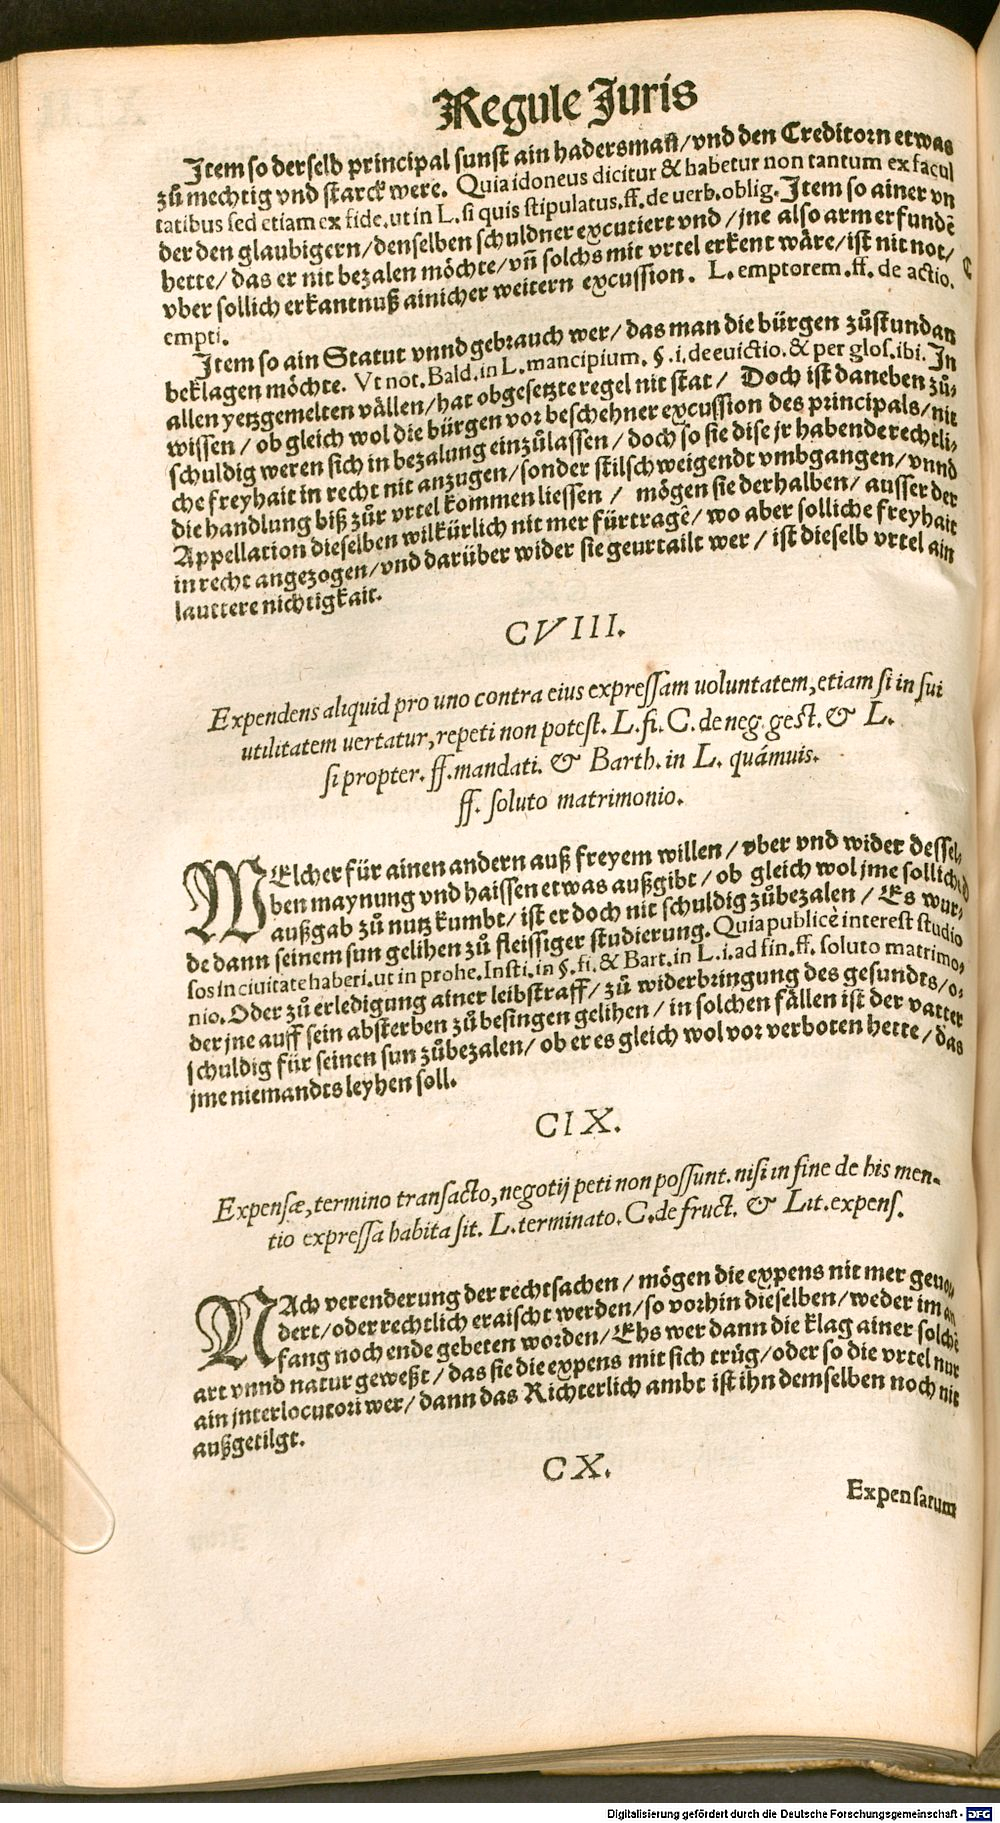 Regule Juris
Item so derselb principal sunst ain hadersmañ/vnd den Creditorn etwas
zů mechtig vnd starck were. Quia idoneus dicitur & habetur non tantum ex facul
tatibus sed etiam ex fide. ut in L. si quis stipulatus. ff. de uerb. oblig. Item so ainer vn
der den glaubigern/denselben schuldner excutiert vnd/jne also arm erfundē
hette/das er nit bezalen möchte/vñ solchs mit vrtel erkent wäre/ist nit not/
vber sollich erkantnuß ainicher weitern excussion. L. emptorem. ff. de actio.
empti.
Item so ain Statut vnnd gebrauch wer/das man die bürgen zůstundan
beklagen möchte. Vt not. Bald. in L. mancipium. §. i. de euictio. & per glos. ibi. In
allen yetzgemelten vällen/hat obgesetzte regel nit stat/ Doch ist daneben zů-
wissen/ob gleich wol die bürgen vor beschehner excussion des principals/nit
schuldig weren sich in bezalung einzůlassen/doch so sie dise jr habende rechtli-
che freyhait in recht nit anzugen/sonder stilschweigendt vmbgangen/vnnd
die handlung biß zůr vrtel kommen liessen/ mögen sie derhalben/ausser der
Appellation dieselben wilkürlich nit mer fürtragē/wo aber solliche freyhait
in recht angezogen/vnd darüber wider sie geurtailt wer/ist dieselb vrtel ain
lauttere nichtigkait.
CVIII.
Expendens aliquid pro uno contra eius expressam uoluntatem, etiam si in sui
utilitatem uertatur, repeti non potest. L. fi. C. de neg. gest. & L.
si propter. ff. mandati. & Barth. in L. quámuis.
ff. soluto matrimonio.
WElcher für ainen andern auß freyem willen/vber vnd wider dessel-
ben maynung vnd haissen etwas außgibt/ob gleich wol jme sollich
außgab zů nutz kumbt/ist er doch nit schuldig zůbezalen/Es wur-
de dann seinem sun gelihen zů fleissiger studierung. Quia publicè interest studio
sos in ciuitate haberi. ut in prohe. Insti. in §. fi. & Bart. in L. i. ad fin. ff. soluto matrimo-
nio. Oder zů erledigung ainer leibstraff/zů widerbringung des gesundts/o-
der jne auff sein absterben zůbesingen gelihen/in solchen fällen ist der vatter
schuldig für seinen sun zůbezalen/ob er es gleich wol vor verboten hette/das
jme niemandts leyhen soll.
CIX.
Expensæ, termino transacto, negotij peti non possunt. nisi in fine de his men-
tio expressa habita sit. L. terminato. C. de fruct. & Lit. expens.
NAch verenderung der rechtsachen/mögen die expens nit mer geuo-
dert/oder rechtlich eraischt werden/so vorhin dieselben/weder im an
fang noch ende gebeten worden/Ehs wer dann die klag ainer solchē
art vnnd natur geweßt/das sie die expens mit sich trüg/oder so die vrtel nur
ain jnterlocutori wer/dann das Richterlich ambt ist ihn demselben noch nit
außgetilgt.
CX.
Expensarum
Digitalisierung gefördert durch die Deutsche Forschungsgemeinschaft - DFG